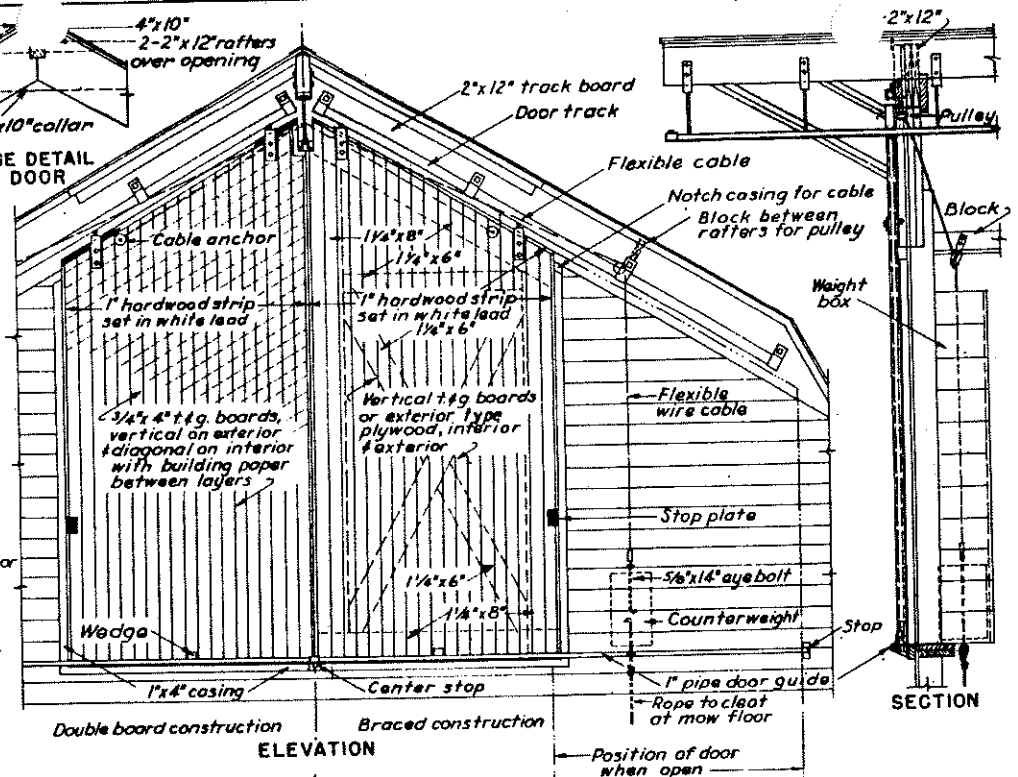 4"x10"
2-2"x12" rafters
over opening
x10" collar
GE DETAIL
DOOR
2"x12" track board
Door track
Flexible cable
Notch casing for cable
Block between
rafters for pulley
2"x12"
Pulley
Block
Weight
box
Cable anchor
1¼"x8"
1¼"x6"
1" hardwood strip
set in white lead
1" hardwood strip
set in white lead
1¼"x6"
3/4"x4" t.&g. boards,
vertical on exterior
& diagonal on interior
with building paper
between layers
Vertical t.&g boards
or exterior type
plywood, interior
& exterior
Flexible
wire cable
Stop plate
or
1¼"x6"
1¼"x8"
5/8"x14" ayebolt
Counterweight
Stop
Wedge
1"x4" casing
Center stop
1" pipe door guide
Rope to cleat
at mow floor
SECTION
Double board construction
Braced construction
ELEVATION
Position of door
when open